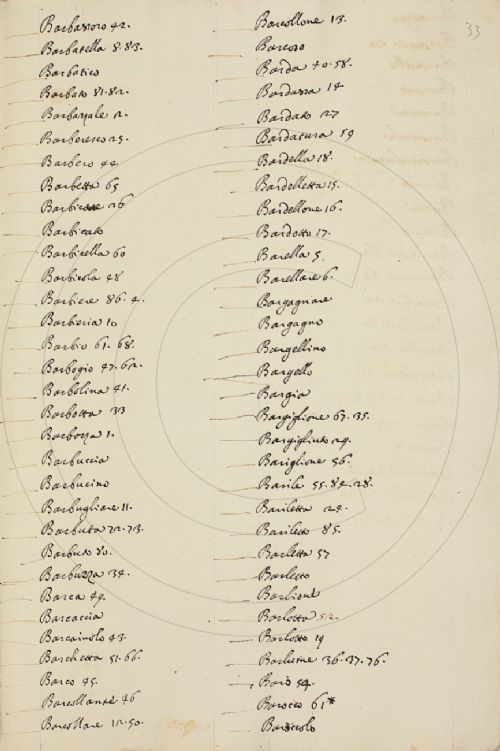 33
Barbassoro 42.
Barbatella 8.83.
Barbatico
Barbato 81.82.
Barbazzale 12.
Barberesco 25.
Barbero 44
Barbetta 65
Barbicare 26
Barbicato
Barbicella 60
Barbicola 48
Barbiere 86. 4.
Barbieria 10
Barbio 61. 68.
Barbogio 47. 62.
Barbolina 41.
Barbotta 33
Barbozza 1.
Barbuccia
Barbucino
Barbugliare 11.
Barbuta 72. 73.
Barbuto 80.
Barbuzza 34.
Barca 49.
Barcaccia
Barcaiuolo 43.
Barchetta 51. 66.
Barco 45.
Barcollante 46
Barcollare 12. 50.
Barcollone 13.
Barcozo
Barda 40. 58.
Bardassa 14
Bardato 27
Bardatura 59
Bardella 18.
Bardelletta 15.
Bardellone 16.
Bardotto 17.
Barella 5.
Barellare 6.
Bargagnare
Bargagno
Bargellino
Bargello
Bargia
Bargiglione 63. 35.
Bargigliuto 29.
Bariglione 56.
Barile 55. 84. 28.
Bariletta 24.
Bariletto 85.
Barletta 57
Barletto
Barlione
Barlotta 52.
Barlotto 19
Barlume 36. 37. 76.
Baro 54.
Barocco 61*
Baroccolo